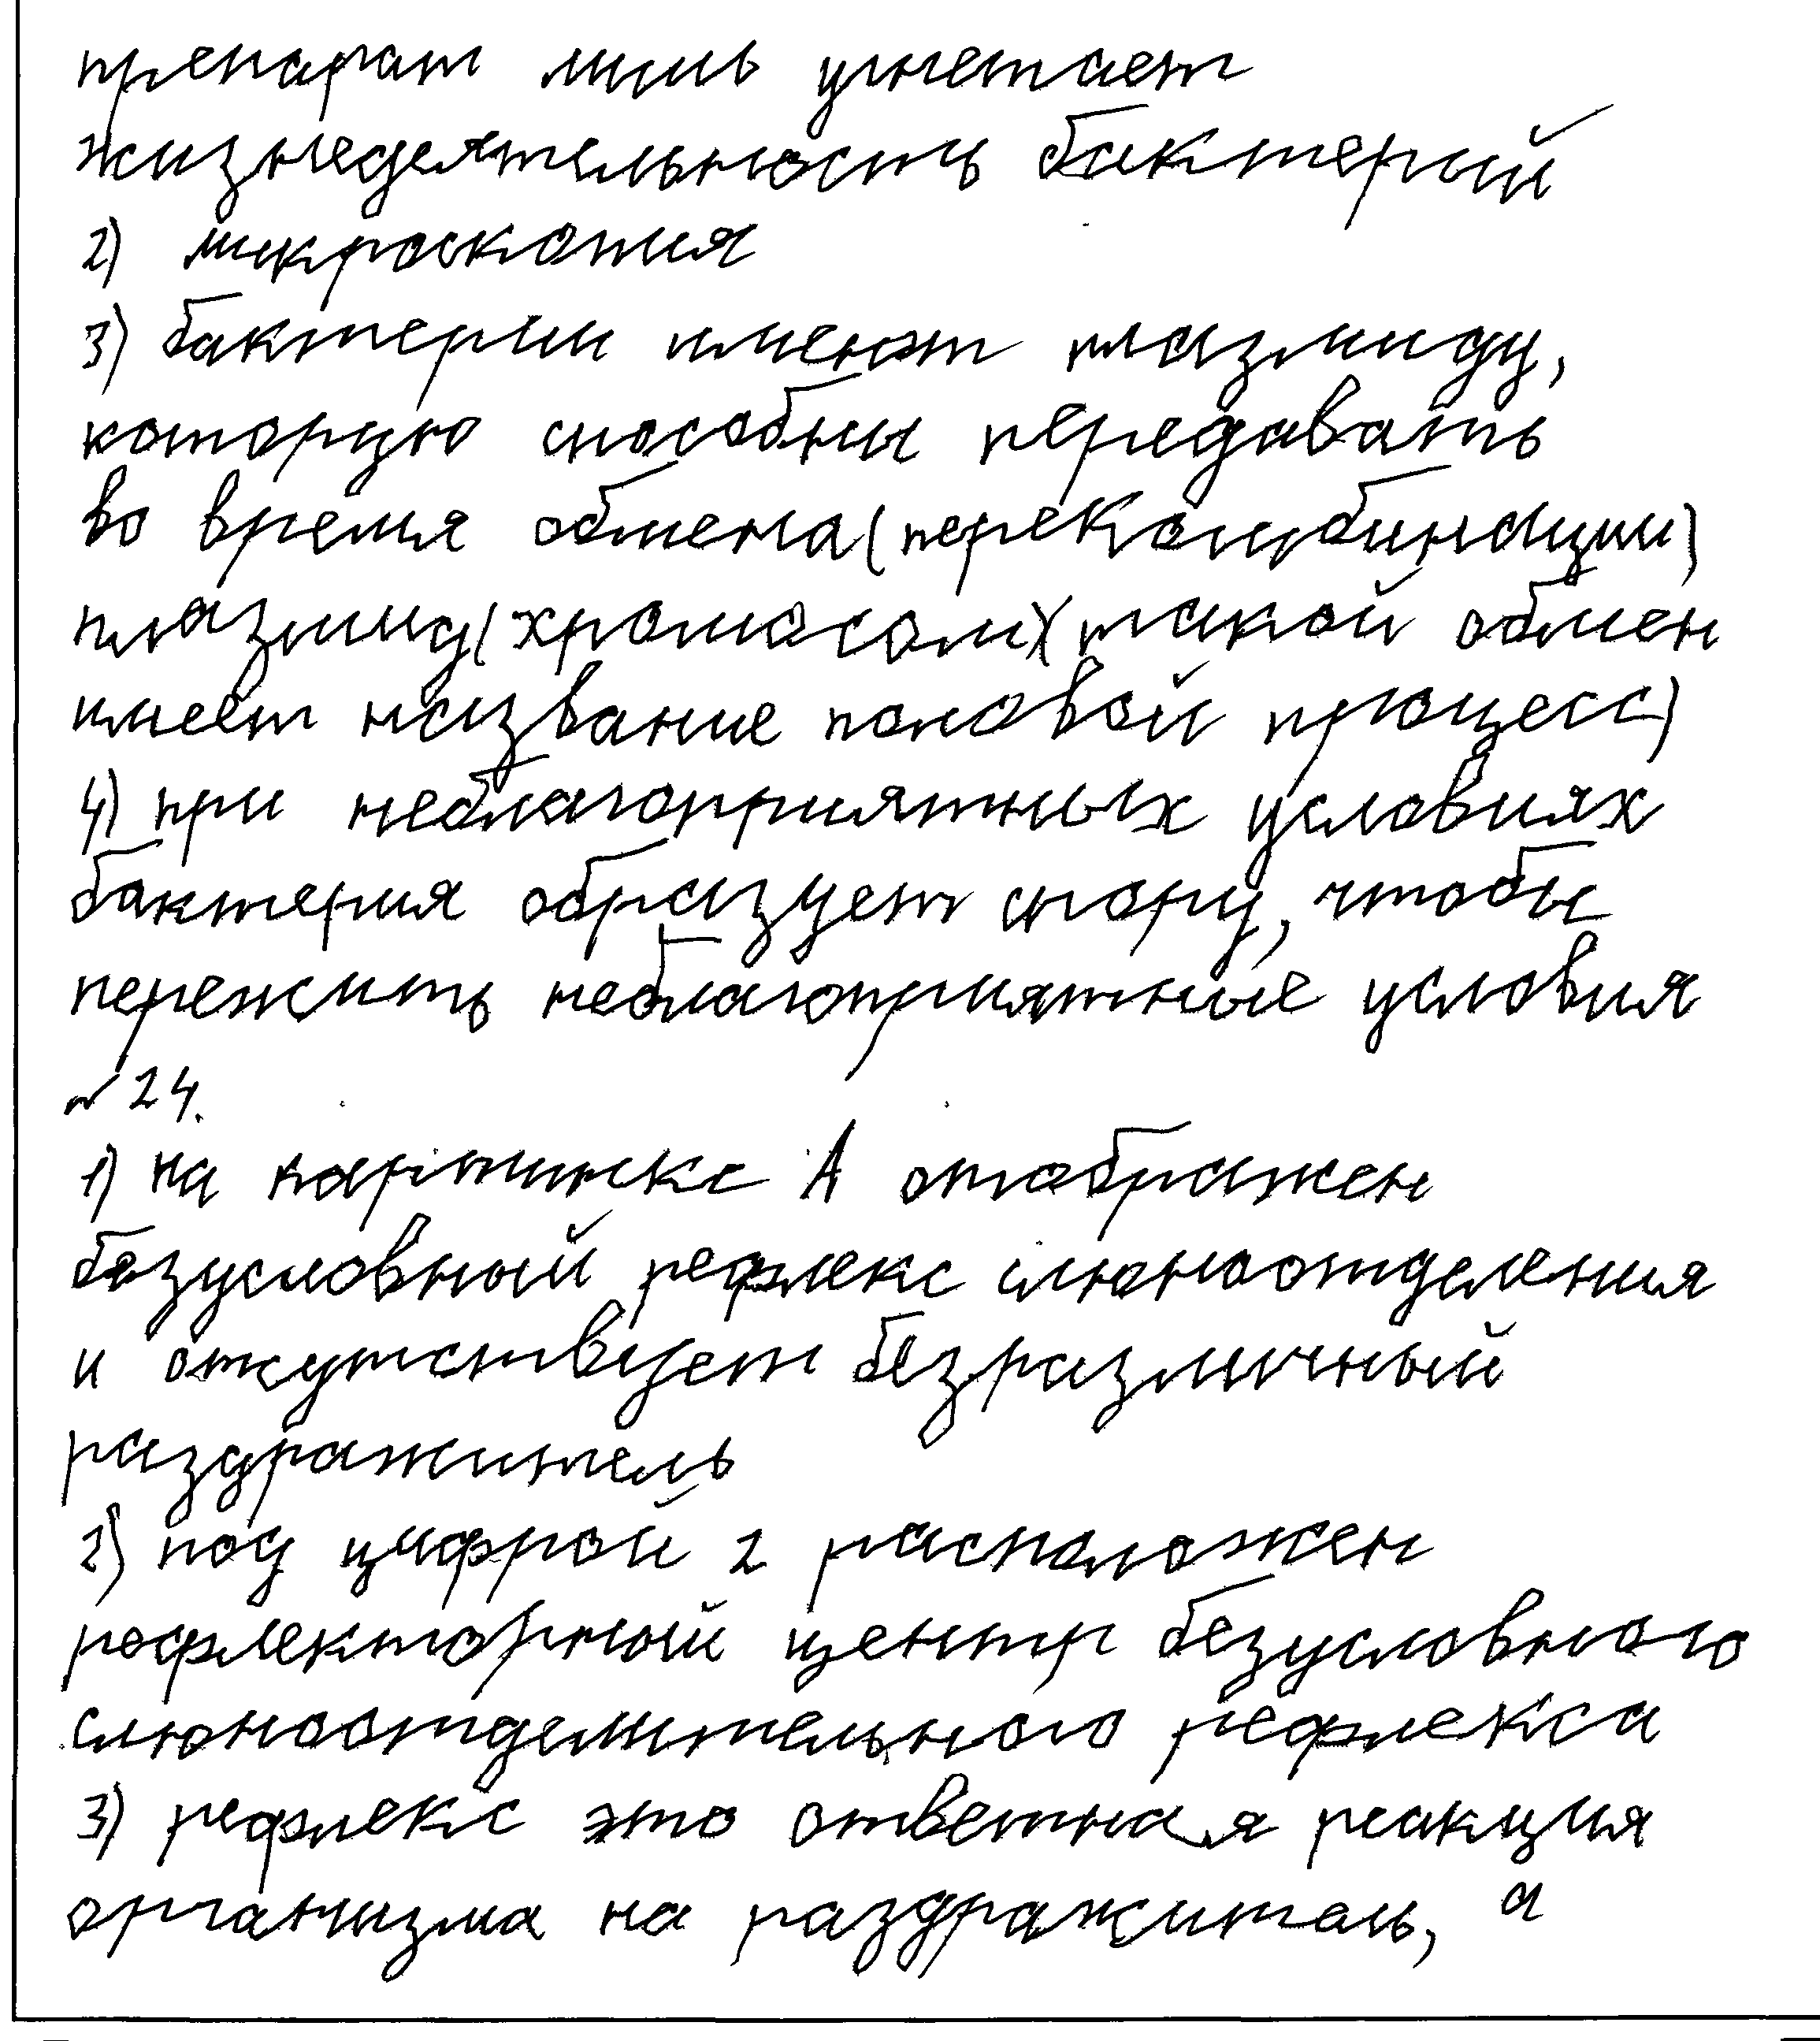 препарат лишь угнетает
жизнедеятельность бактерий
2) микроскопия
3) бактерии имеют плазмиду,
которую способны передавать
во время обмена (перекомбинации)
плазмид (хромосом) (такой обмен
имеет название половой процесс)
4) при неблагоприятных условиях
бактерия образует спору, чтобы
пережить неблагоприятные условия
№ 24.
1) на картинке А отображен
безусловный рефлекс слюноотделения
и отсутствует безразличный
раздражитель
2) под цифрой 2 расположен
рефлекторный центр безусловного
слюноотделительного рефлекса
3) рефлекс это ответная реакция
организма на раздражитель, а